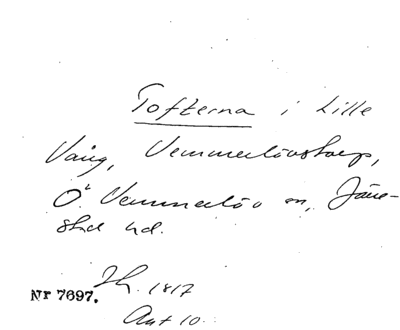 Tofterna i Lille
Vång, Vemmerlövstorp,
Ö Vemmerlöv sn, Järre-
stad hd.
Nr 7697. 1817
Akt 10.